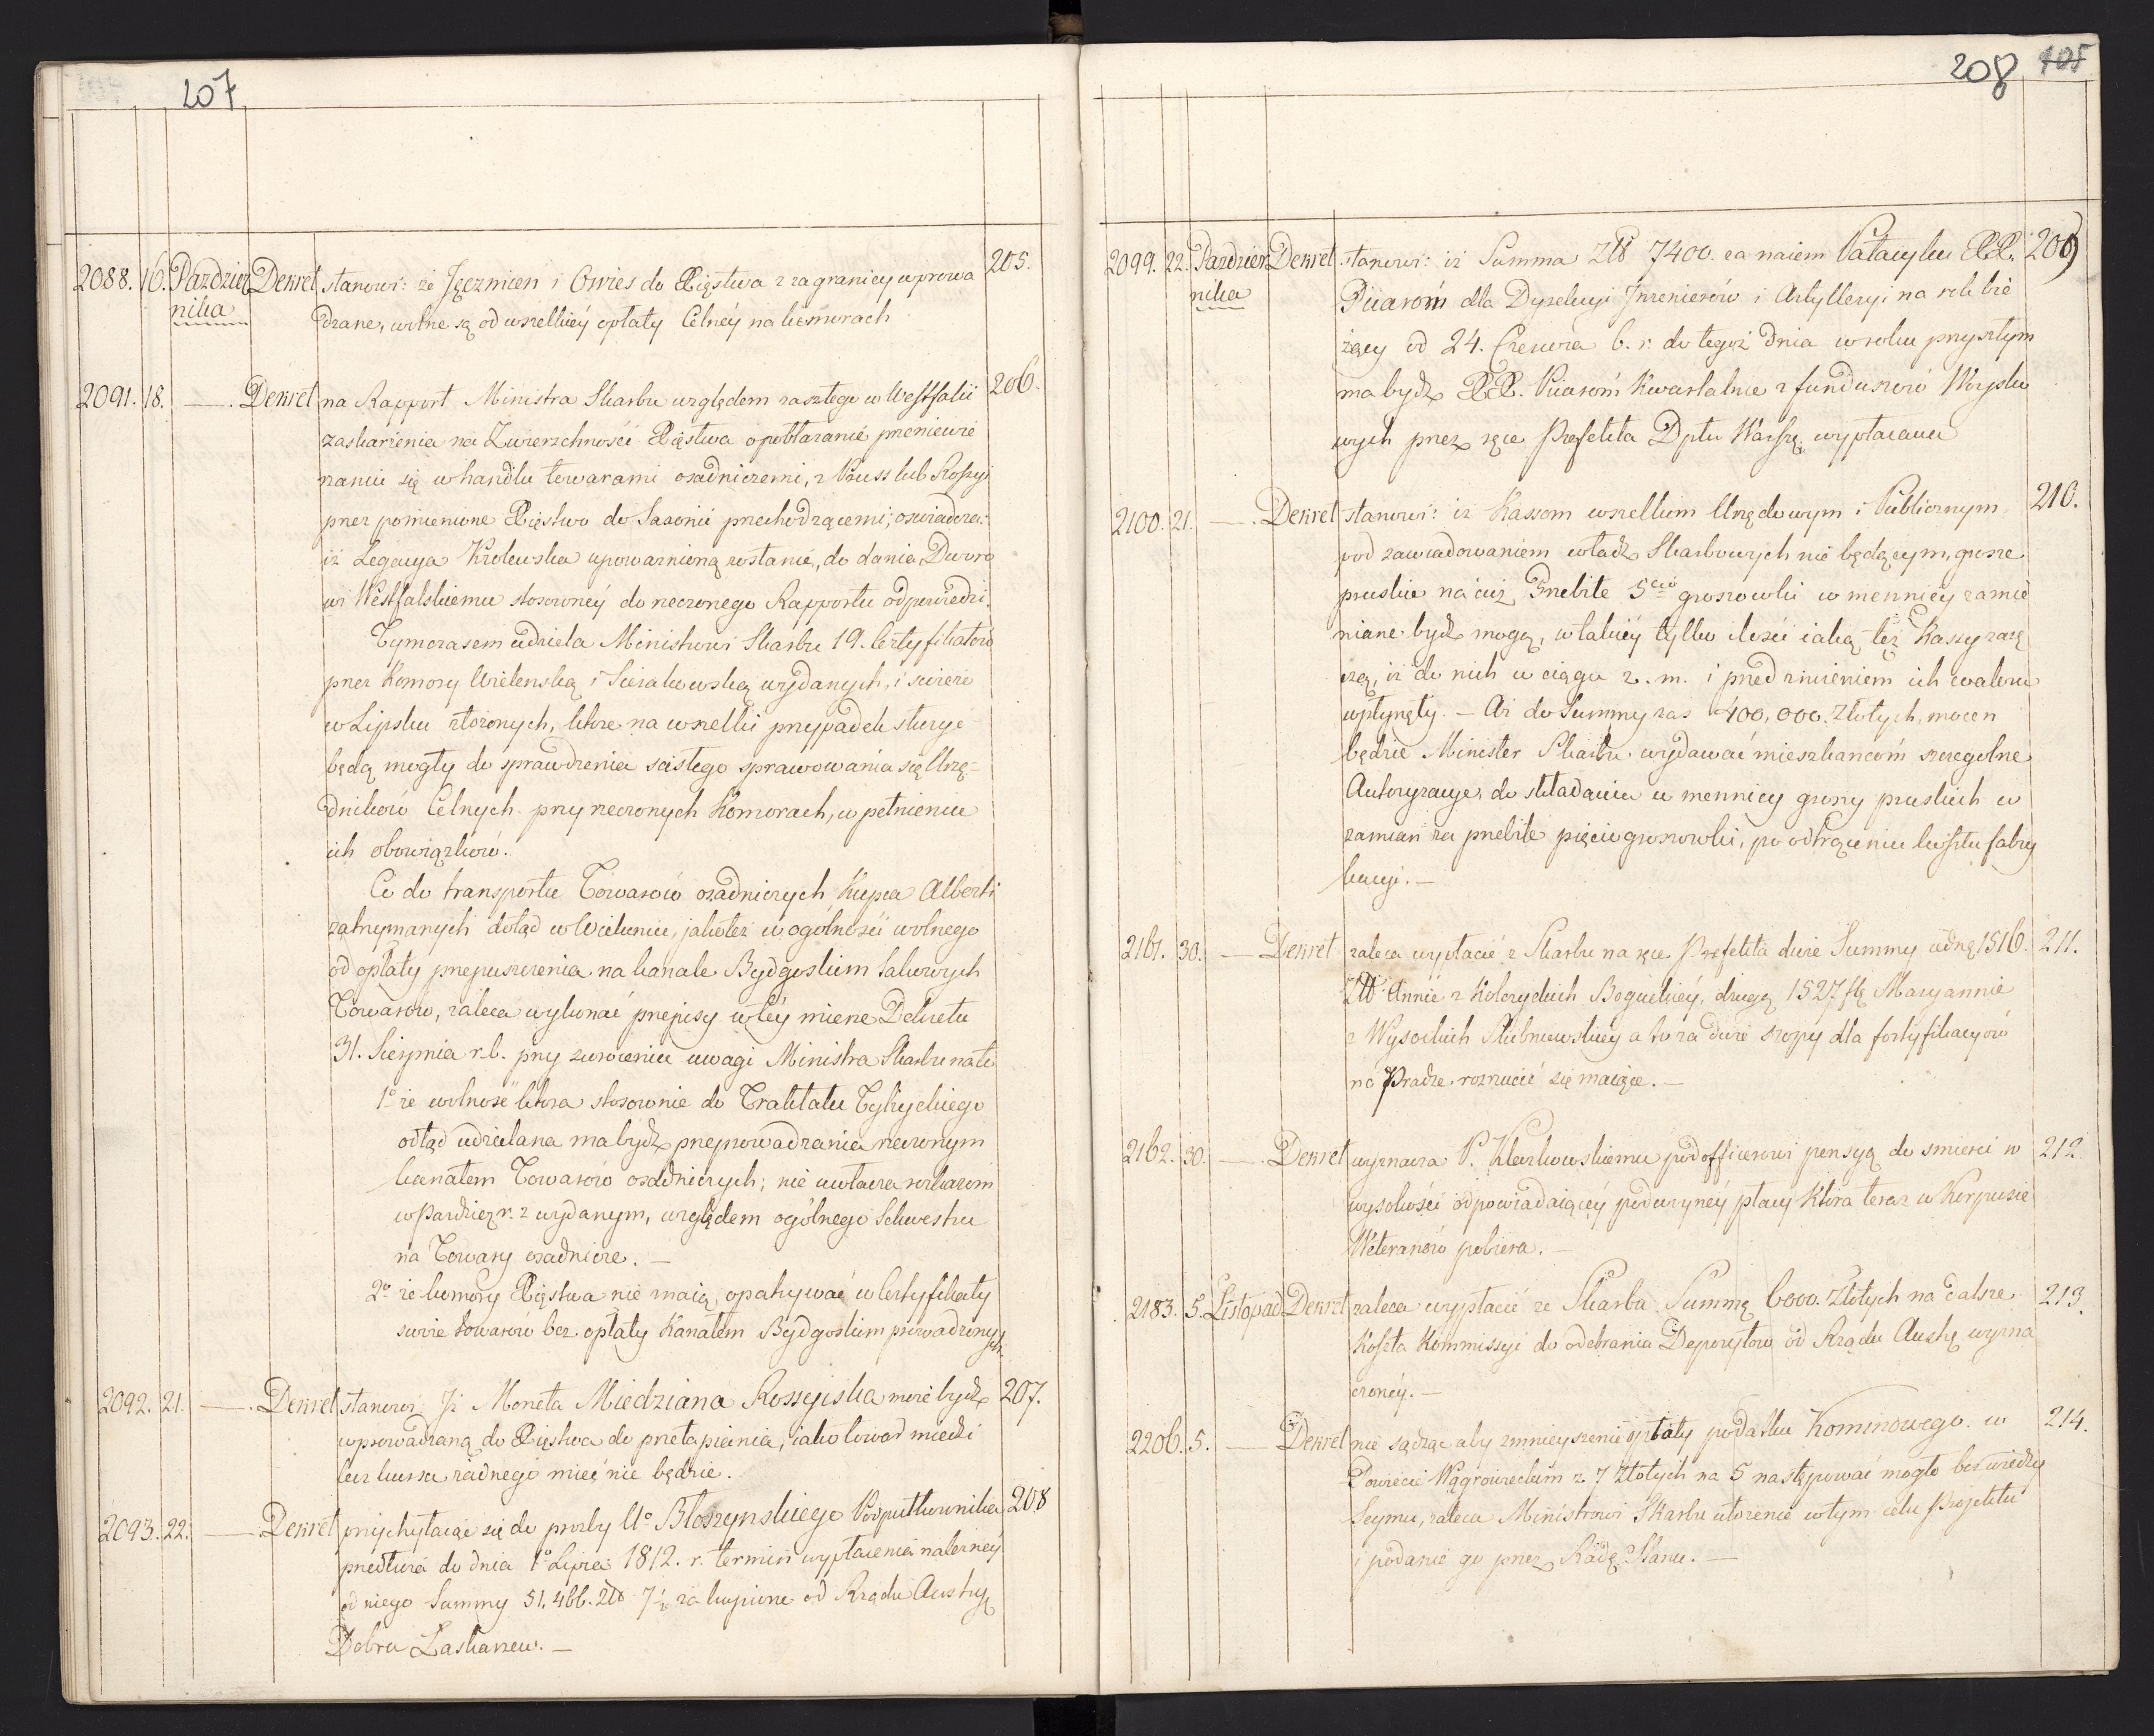 207
2088. 16. Paździer Dekret stanowi: że Jęczmien i Owies do Xięstwa z zagranicy wprowa 205.
nika dzane, wolne są od wszelkiéy opłaty Celnéy na komorach
2091. 18. —. Dekret na Rapport Ministra Skarbu względem zaszłego w Westfalii 206.
zaskarżenia na Zwierzchność Xięstwa o pobłażanie przeniewie
rzaniu się w handlu towarami osadniczemi, z Pruss lub Rossyi
przez pomienione Xięstwo do Saxonii przechodzącemi; oswiadcza:
iż Legacya Krolewska upoważnioną zostanie, do dania Dworo
wi Westfalskiemu stosowney do rzeczonego Rapportu odpowiedzi.
Tymczasem udziela Ministrowi Skarbu 19. Certyfikatów
przez Komory Wielenską i Sierakowską wydanych, i swieżo
w Lipsku złożonych, ktore na wszelki przypadek służyć
będą mogły do sprawdzenia scisłego sprawowania się Urzę-
dników Celnych przy rzeczonych Komorach, w pełnieniu
ich obowiązków.
Co do transportu Towarów osadniczych Kupca Alberti
zatrzymanych dotąd w Wieluniu, jakoteż w ogólności wolnego
od opłaty przepuszczenia na kanale Bydgoskim takowych
Towarow, zaleca wykonać przepisy w tey mierze Dekretu
31. Sierpnia r. b. przy zwroceniu uwagi Ministra Skarbu na to
1° że wolność ktora stosownie do Traktatu Tylżyckiego
odtąd udzielana ma bydź przeprowadzania rzeczonym
kanałem Towarów osadniczych; nie uwłacza rozkazom
w Paździer. r. z wydanym, względem ogólnego Sekwestru
na Towary osadnicze. —
2° że komory Xięstwa nie maią opatrywać w Certyfikaty
swoie towarow bez opłaty Kanałem Bydgoskim prowadzonych.
2092. 21. —. Dekret stanowi Iż Moneta Miedziana Rossyiska może bydź 207.
wprowadzaną do Xięstwa do przetapienia, iako towar miedzi
lecz kursu żadnego mieć nie będzie.
2093. 22. —. Dekret przychylaiąc się do prozby Uo Błeszynskiego Podpułkownika 208
przedłuża do dnia 1° Lipca 1812. r. termin wypłacenia należnéy
od niego Summy 51.466. Złł 7½ za kupione od Rządu Austry
Dobra Laskarzew. —
208 105
2099. 22. Paździer Dekret stanowi: iż Summa Złł 7400. za naiem Pałacyku XX. 209
nika Piiarom dla Dyrekcyi Inżenierów i Artylleryi na rok bie
żący od 24. Czerwca b. r. do tegoż dnia w roku przyszłym
ma bydź XX. Piiarom Kwartalnie z funduszów Woysko
wych przez ręce Prefekta Dptu Warszą. wypłacana
2100. 21. —. Dekret stanowi: iż Kassom wszelkim Urzędowym i Publicznym 210.
pod zawiadowaniem władz Skarbowych nie będącym, grosze
pruskie na iuż Przebite 5cio groszowki w mennicy zamie
niane bydź mogą, w takiéy tylko ilości iaką też Kassy zarę
czą, iż do nich w ciągu z. m. i przed zniżeniem ich waloru
wpłynęły. — Aż do Summy zas 400,000. Złotych, mocen
będzie Minister Skarbu wydawać mieszkancóm szczegolne
Autoryzacye, do składania w mennicy groszy pruskich w
zamian za przebite pięciogroszowki, po odtrąceniu kosztu fabry
kacyi. —
2161. 30. — Dekret zaleca wypłacić z Skarbu na ręce Prefekta dwie Summy iedną 1516. 211.
Złł Annie z Kobryckich Boguckiéy, drugą 1527 złł Maryannie
z Wysockich Dłubniewskiéy a to za dwie szopy dla fortyfikacyów
na Pradze rozrzucić się maiące. —
2162. 30. —. Dekret wyznacza P. Kleczkowskiemu podofficerowi pensyą do smierci w 212
wysokości odpowiadaiącéy podwóyney płacy Która teraz w Korpusie
Weteranów pobiera. —
2183. 5. Listopad Dekret zaleca wypłacić ze Skarbu Summę 6000. Złotych na dalsze 213.
Koszta Kommissyi do odebrania Depozytow od Rządu Austrę wyzna
czonéy. —
2206. 5. — Dekret nie sądząc aby zmnieyszenie opłaty podatku Kominowego w 214.
Powiecie Wągrowieckim z 7 Złotych na 5 następować mogło bez wiedzy
Seymu, zaleca Ministrowi Skarbu ułożenie w tym celu Projektu
i podanie go przez Radę Stanu. —